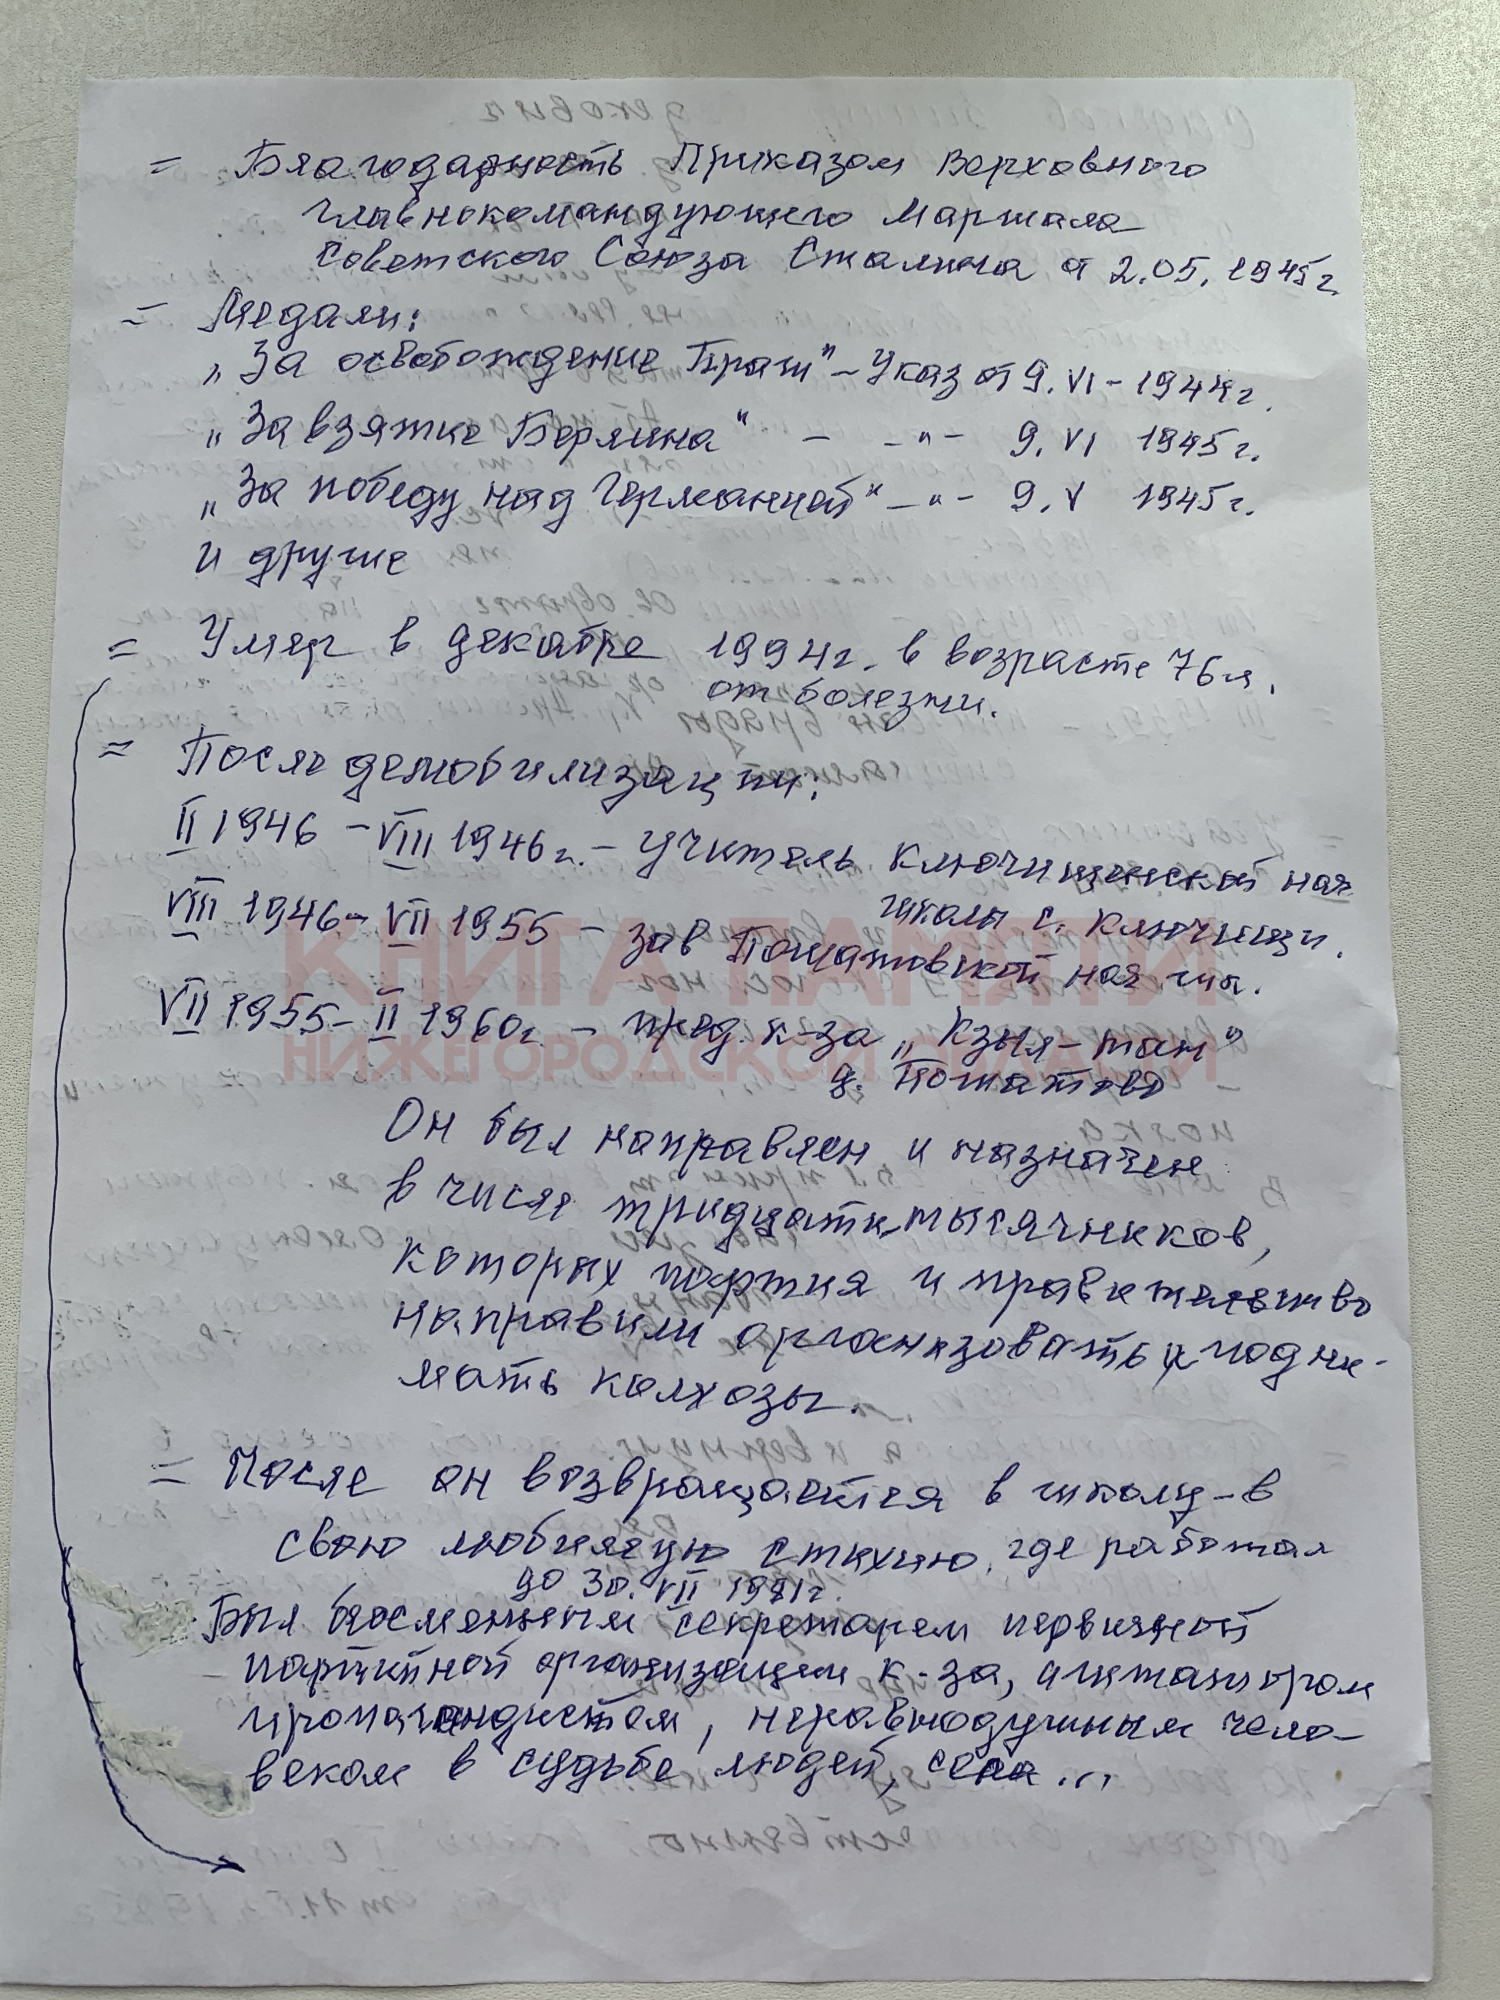 = Благодарность Приказом Верховного
Главнокомандующего Маршала
Советского Союза Сталина от 2.05.1945г.
= Медали:
„За освобождение Праги" – Указ от 9.VI – 1944г.
„За взятие Берлина" – -"- 9.VI 1945г.
„За победу над Германией" -"- 9.V 1945г.
и другие
= Умер в декабре 1994г. в возрасте 76л.
от болезни.
= После демобилизации:
II 1946 – VIII 1946г. – учитель Ключищенской нач.
школы с. Ключищи.
VIII 1946 – VII 1955 – зав Пошатовской нач. шк.
КНИГА ПАМЯТИ
VII 1955 – II 1960г. – пред. к-за „Кзыл-тан"
НИЖЕГОРОДСКОЙ ОБЛАСТИ
д. Пошатово
Он был направлен и назначен
в числе тридцатитысячников,
которых партия и правительство
направили организовать и подни-
мать колхозы.
= После он возвращается в школу – в
свою любимую стихию, где работал
до 30.VII 1981г.
Был бессменным секретарем первичной
партийной организации к-за, агитатором
пропагандистом, неравнодушным чело-
веком в судьбе людей, села...